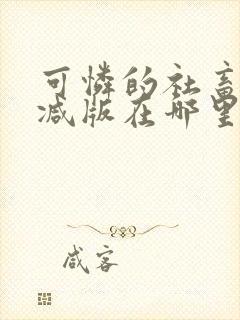 可憐的社畜
减版在哪里
咸客